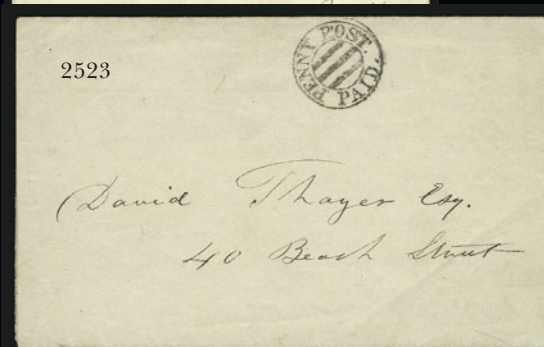 2523
PENNY POST.
PAID.
David Thayer Esq.
40 Beach Street